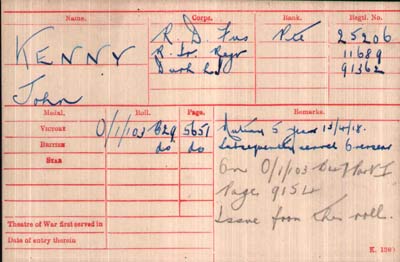 Name. Corps. Rank. Regtl. No.
KENNY R. D. Fus Pte 25206
R. Ir. Regt 11689
John 91362
Medal. Roll. Page. Remarks.
VICTORY O/1/103 B29 5651 5 years 13/4/18.
BRITISH do do Subsequently served Overseas
STAR On O/1/103 Part I
Page 915
Issue from this roll.
Theatre of War first served in
Date of entry therein
K. 1380